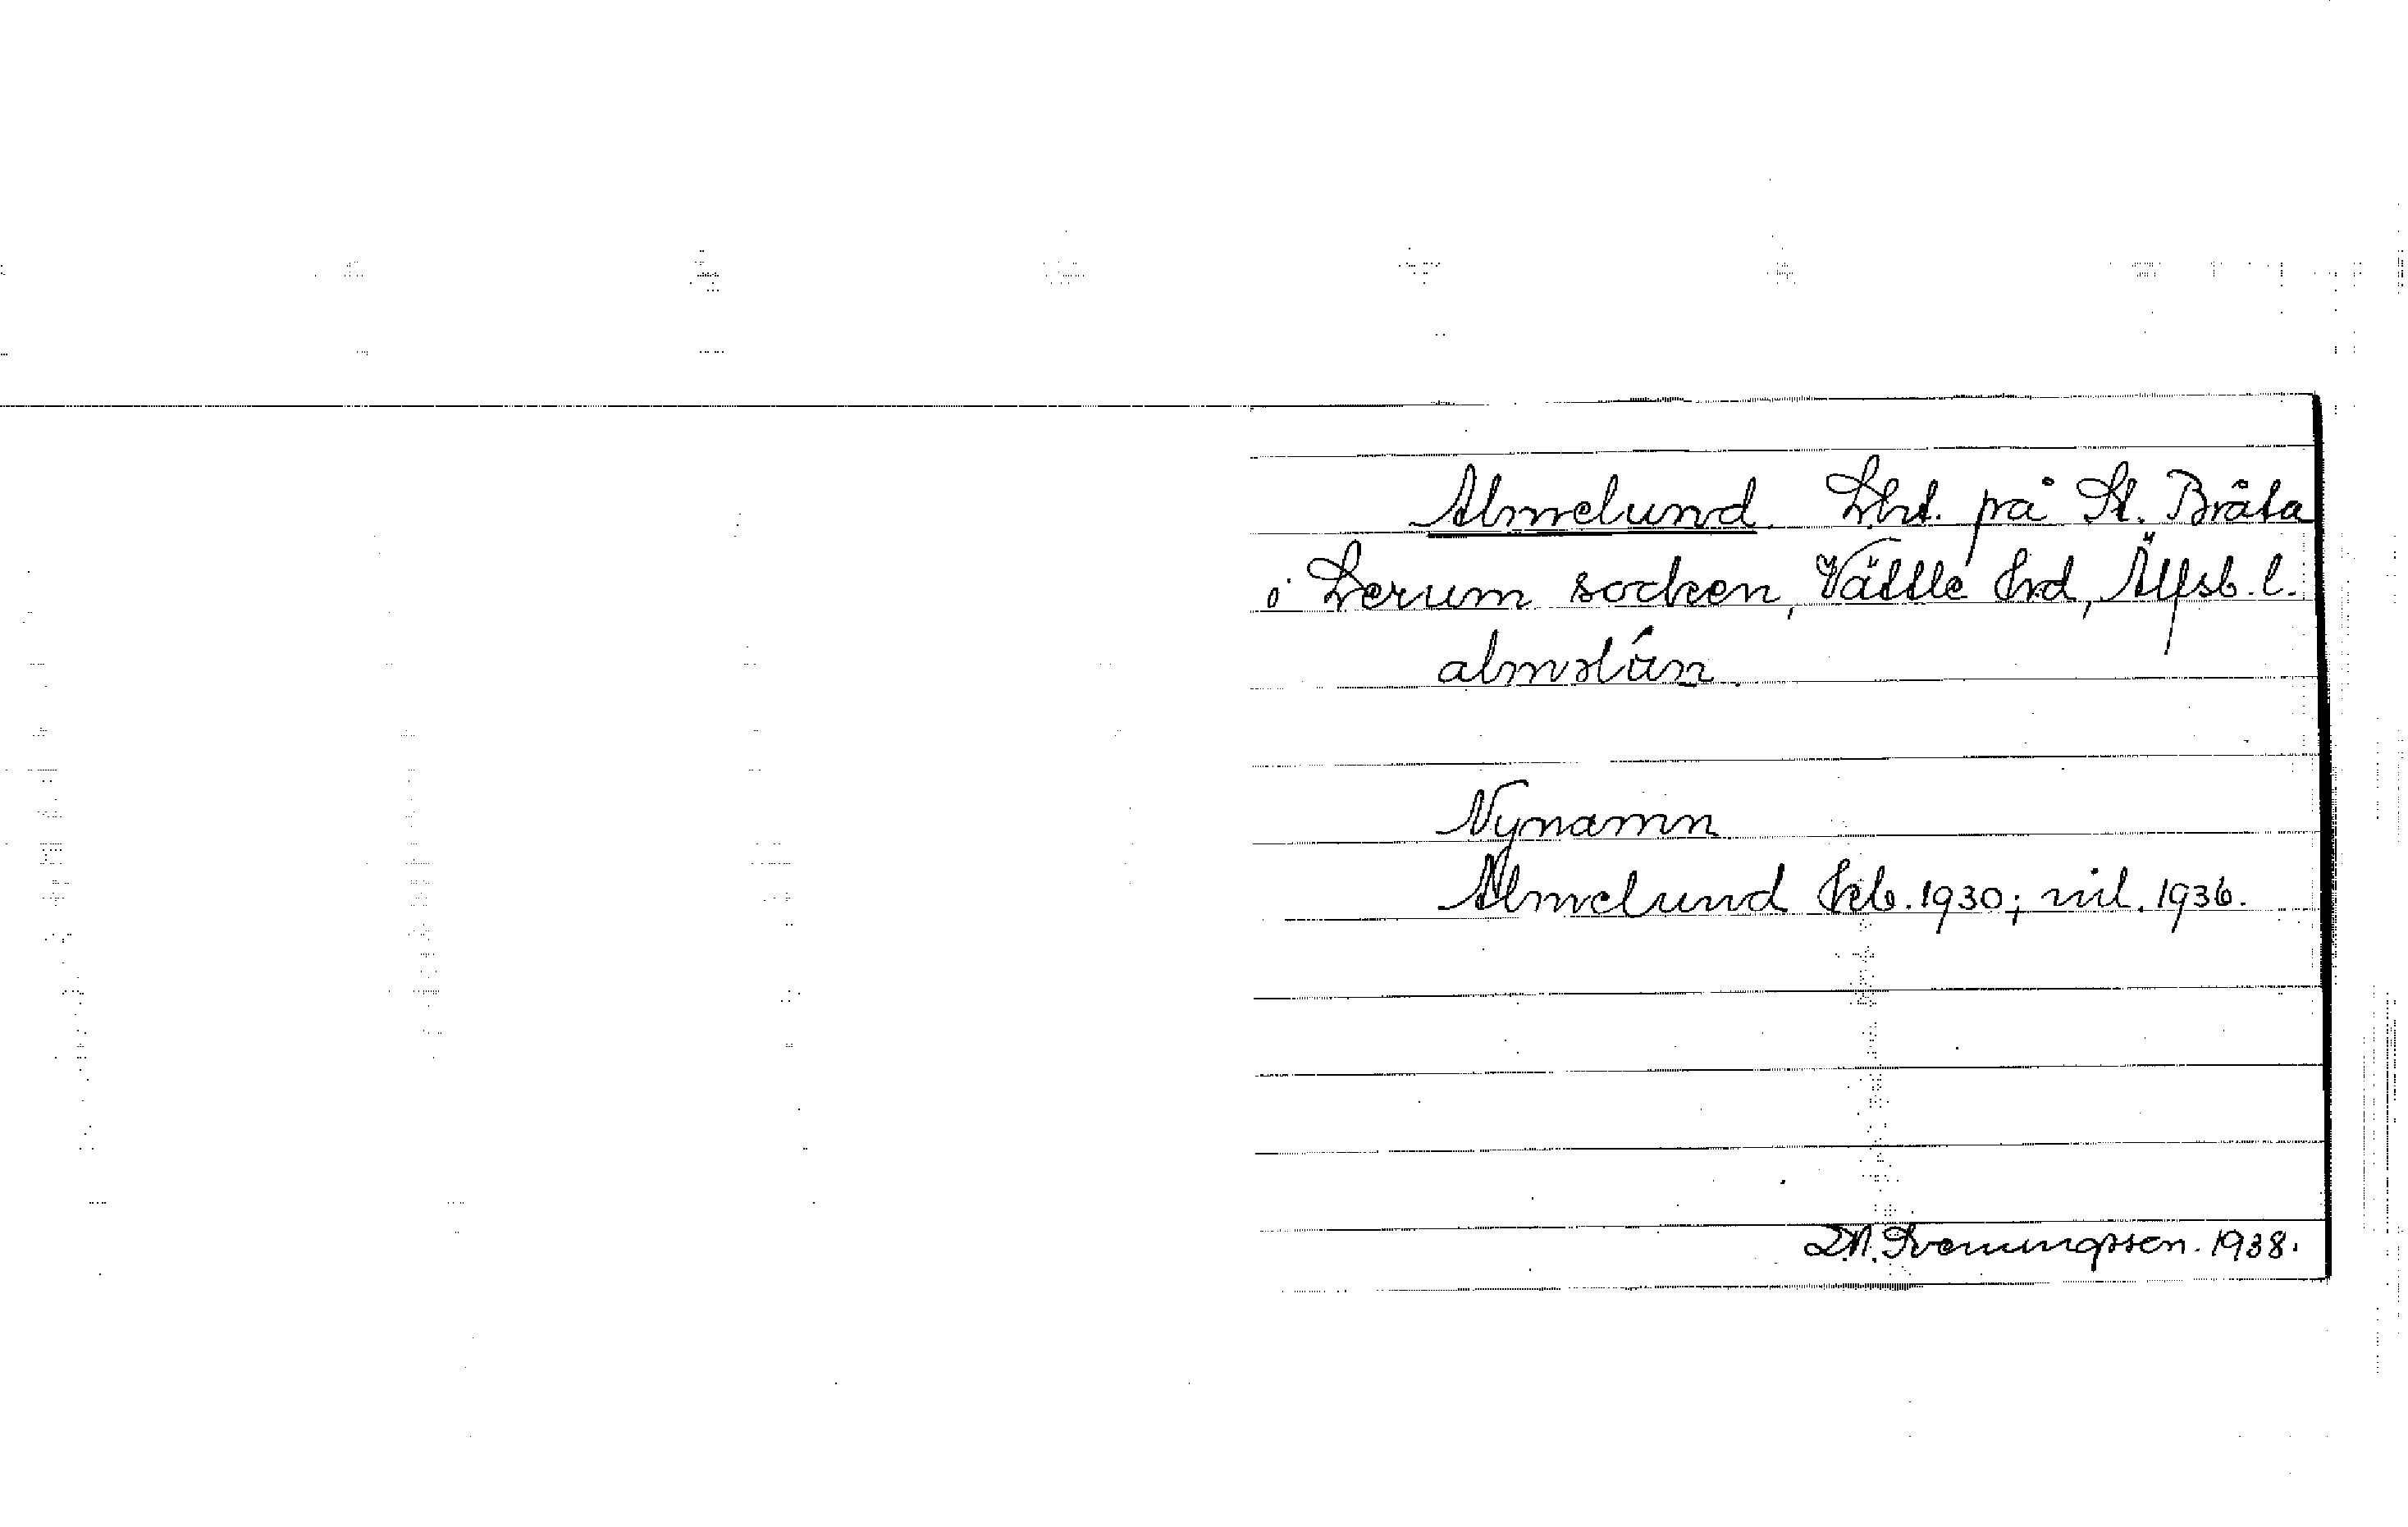 Almelund. Lht. på St. Bråta
i Lerum socken, Vättle hd, Älfsb. l.
alməlún.
Nynamn
Almelund hfb. 1930; vid. 1936.
D.N. Sveningsson. 1938.